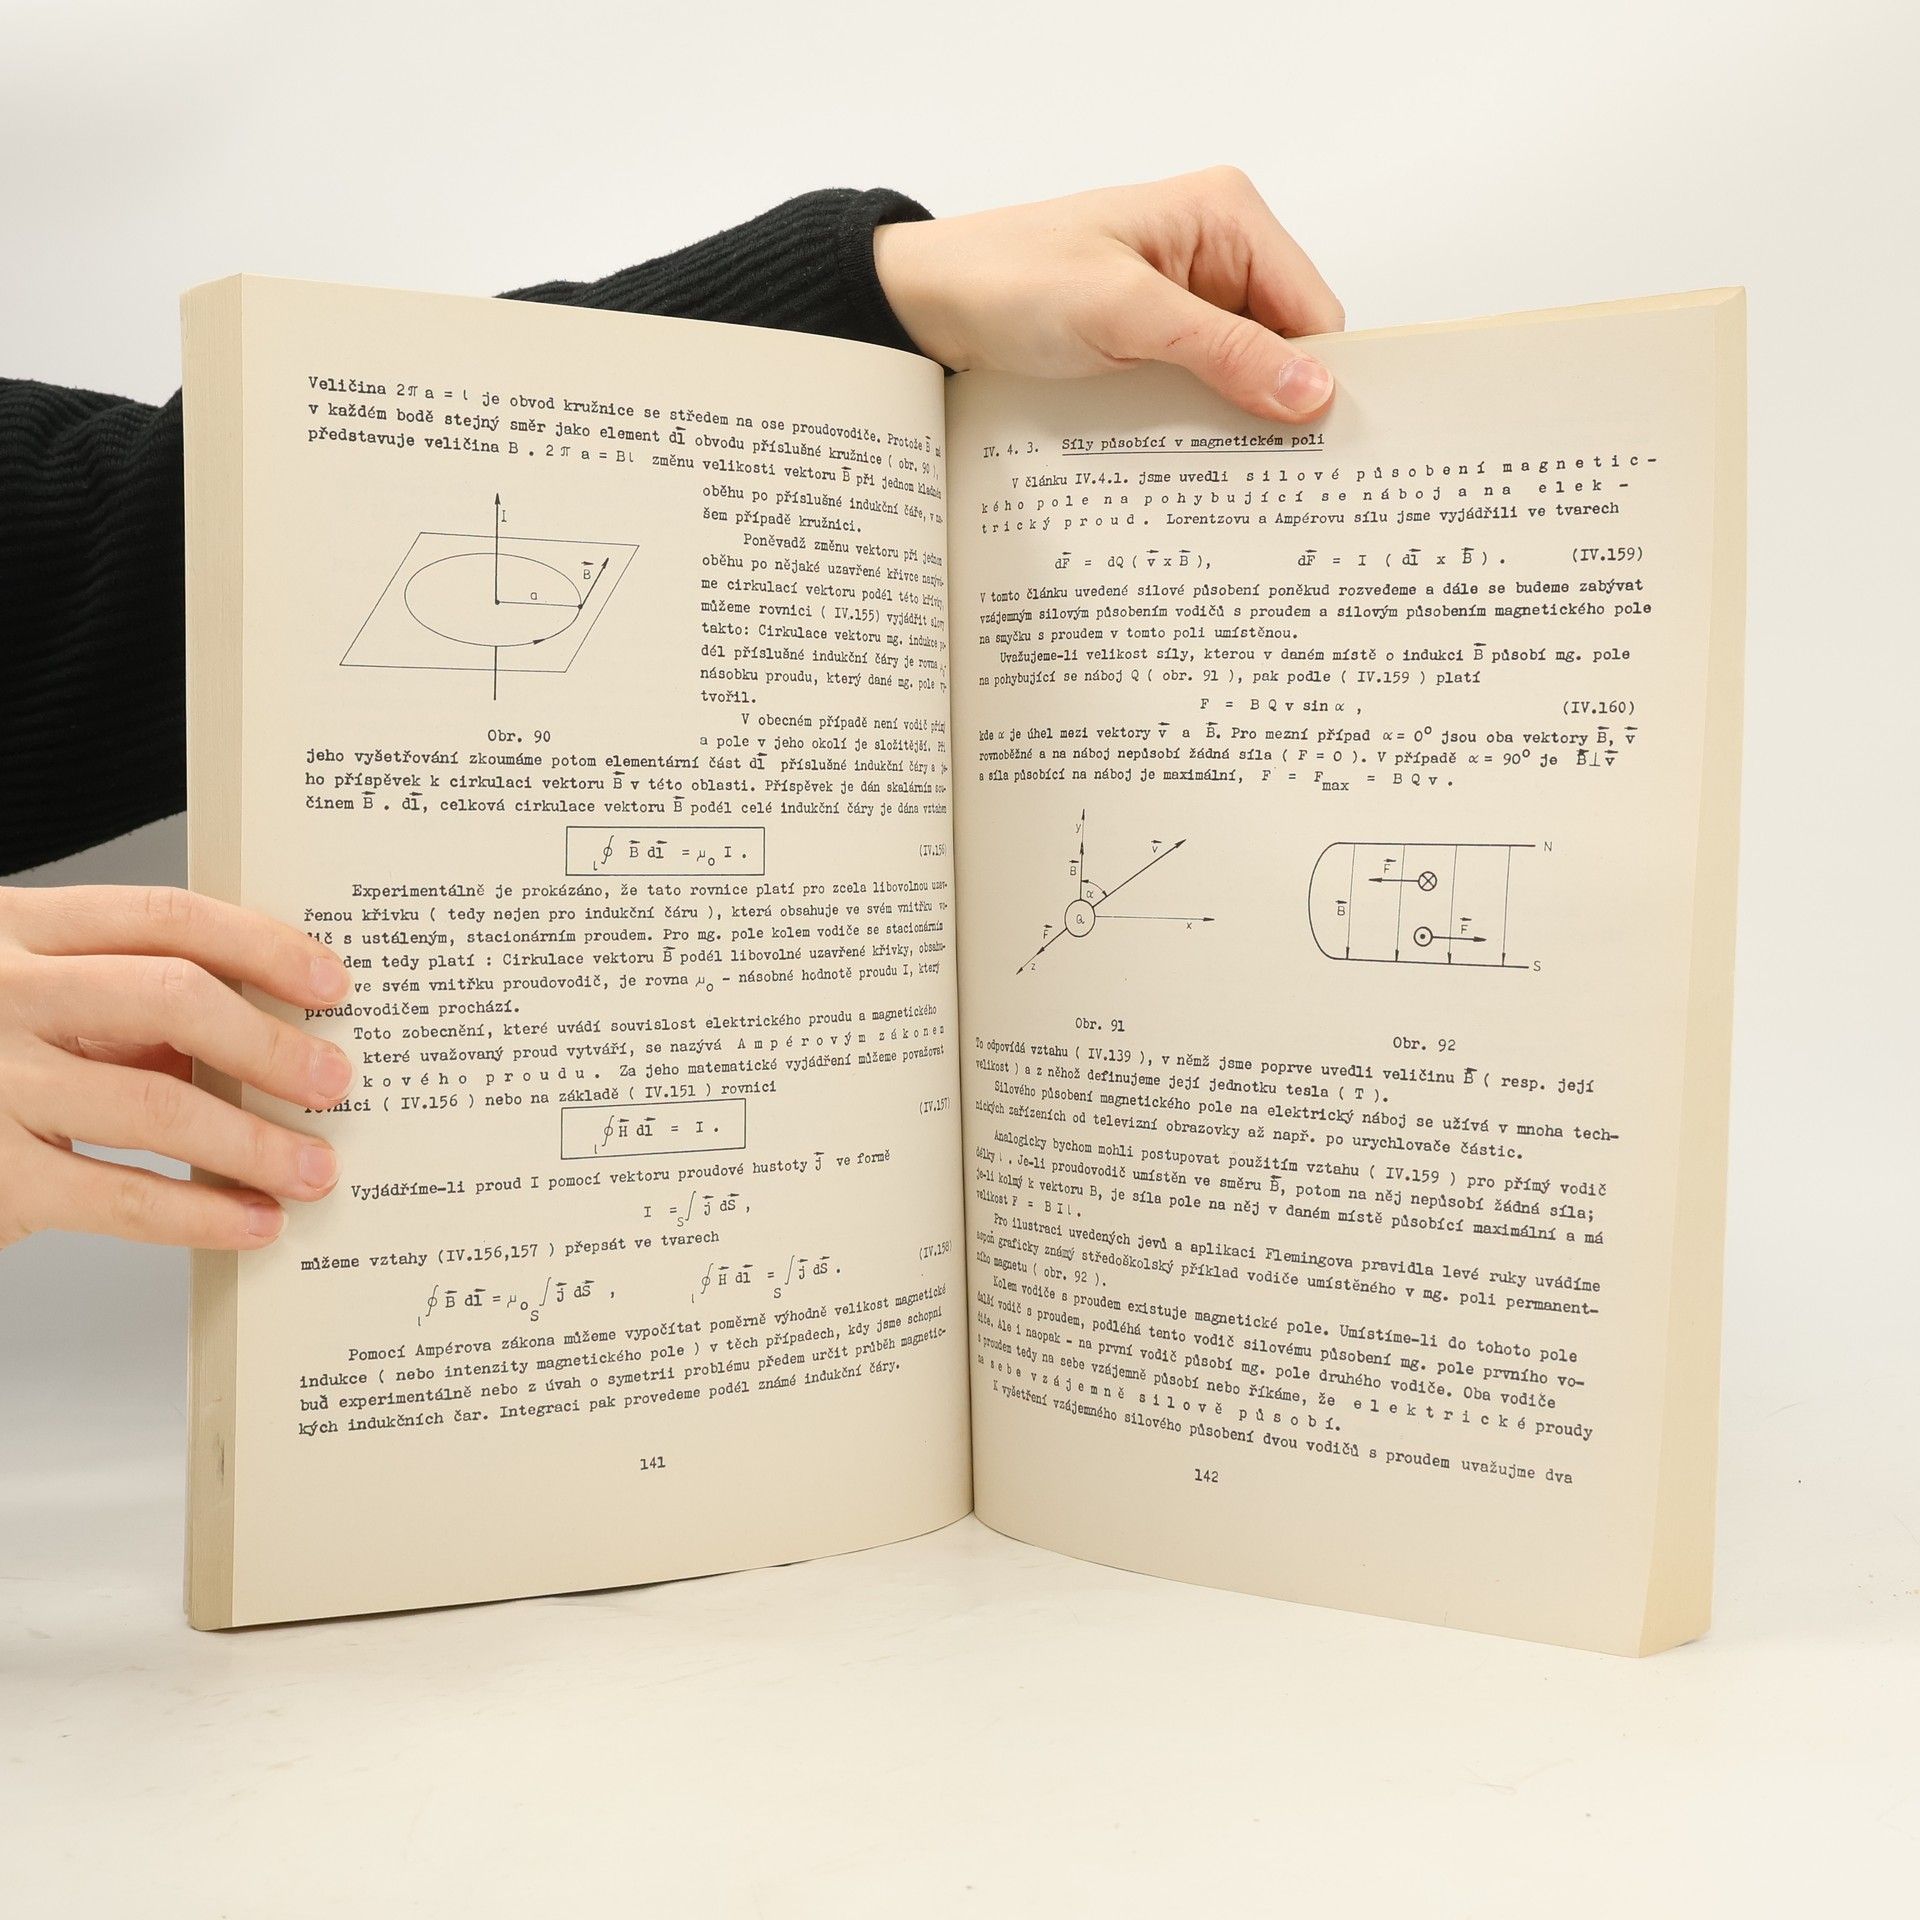 Veličina 2πa = l je obvod kružnice se středem na ose proudovodiče. Protože B⃗ má
v každém bodě stejný směr jako element dl⃗ obvodu příslušné kružnice ( obr. 90 ),
představuje veličina B . 2πa = Bl změnu velikosti vektoru B⃗ při jednom kladném
oběhu po příslušné indukční čáře, v na-
šem případě kružnici.
Poněvadž změnu vektoru při jednom
oběhu po nějaké uzavřené křivce nazývá-
me cirkulací vektoru podél této křivky,
můžeme rovnici ( IV.155) vyjádřit slovy
takto: Cirkulace vektoru mg. indukce po-
dél příslušné indukční čáry je rovna
násobku proudu, který dané mg. pole vy-
tvořil.
V obecném případě není vodič přímý
a pole v jeho okolí je složitější. Při
I
B⃗
a
Obr. 90
jeho vyšetřování zkoumáme potom elementární část dl⃗ příslušné indukční čáry a je-
ho příspěvek k cirkulaci vektoru B⃗ v této oblasti. Příspěvek je dán skalárním sou-
činem B⃗ . dl⃗, celková cirkulace vektoru B⃗ podél celé indukční čáry je dána vztahem
∮l B⃗ dl⃗ = μ₀ I . (IV.156)
Experimentálně je prokázáno, že tato rovnice platí pro zcela libovolnou uzav-
řenou křivku ( tedy nejen pro indukční čáru ), která obsahuje ve svém vnitřku vo-
dič s ustáleným, stacionárním proudem. Pro mg. pole kolem vodiče se stacionárním
dem tedy platí : Cirkulace vektoru B⃗ podél libovolné uzavřené křivky, obsahu-
ve svém vnitřku proudovodič, je rovna μ₀ - násobné hodnotě proudu I, který
proudovodičem prochází.
Toto zobecnění, které uvádí souvislost elektrického proudu a magnetického
které uvažovaný proud vytváří, se nazývá A m p é r o v ý m z á k o n e m
k o v é h o p r o u d u . Za jeho matematické vyjádření můžeme považovat
rovnici ( IV.156 ) nebo na základě ( IV.151 ) rovnici
∮l H⃗ dl⃗ = I . (IV.157)
Vyjádříme-li proud I pomocí vektoru proudové hustoty j⃗ ve formě
I = ∫S j⃗ dS⃗ ,
můžeme vztahy (IV.156,157 ) přepsát ve tvarech
∮l B⃗ dl⃗ = μ₀ ∫S j⃗ dS⃗ , ∮l H⃗ dl⃗ = ∫S j⃗ dS⃗ . (IV.158)
Pomocí Ampérova zákona můžeme vypočítat poměrně výhodně velikost magnetické
indukce ( nebo intenzity magnetického pole ) v těch případech, kdy jsme schopni
buď experimentálně nebo z úvah o symetrii problému předem určit průběh magnetic-
kých indukčních čar. Integraci pak provedeme podél známé indukční čáry.
141
IV. 4. 3. Síly působící v magnetickém poli
V článku IV.4.1. jsme uvedli s i l o v é p ů s o b e n í m a g n e t i c -
k é h o p o l e n a p o h y b u j í c í s e n á b o j a n a e l e k -
t r i c k ý p r o u d . Lorentzovu a Ampérovu sílu jsme vyjádřili ve tvarech
dF⃗ = dQ ( v⃗ x B⃗ ), dF⃗ = I ( dl⃗ x B⃗ ) . (IV.159)
V tomto článku uvedené silové působení poněkud rozvedeme a dále se budeme zabývat
vzájemným silovým působením vodičů s proudem a silovým působením magnetického pole
na smyčku s proudem v tomto poli umístěnou.
Uvažujeme-li velikost síly, kterou v daném místě o indukci B⃗ působí mg. pole
na pohybující se náboj Q ( obr. 91 ), pak podle ( IV.159 ) platí
F = B Q v sin α , (IV.160)
kde α je úhel mezi vektory v⃗ a B⃗. Pro mezní případ α = 0° jsou oba vektory B⃗, v⃗
rovnoběžné a na náboj nepůsobí žádná síla ( F = 0 ). V případě α = 90° je B⃗⊥v⃗
a síla působící na náboj je maximální, F = Fmax = B Q v .
y
B⃗
v⃗
α
Q
x
F⃗
z
Obr. 91
N
F⃗
B⃗
F⃗
S
Obr. 92
To odpovídá vztahu ( IV.139 ), v němž jsme poprve uvedli veličinu B⃗ ( resp. její
velikost ) a z něhož definujeme její jednotku tesla ( T ).
Silového působení magnetického pole na elektrický náboj se užívá v mnoha tech-
nických zařízeních od televizní obrazovky až např. po urychlovače částic.
Analogicky bychom mohli postupovat použitím vztahu ( IV.159 ) pro přímý vodič
délky l . Je-li proudovodič umístěn ve směru B⃗, potom na něj nepůsobí žádná síla;
je-li kolmý k vektoru B, je síla pole na něj v daném místě působící maximální a má
velikost F = B I l .
Pro ilustraci uvedených jevů a aplikaci Flemingova pravidla levé ruky uvádíme
aspoň graficky známý středoškolský příklad vodiče umístěného v mg. poli permanent-
ního magnetu ( obr. 92 ).
Kolem vodiče s proudem existuje magnetické pole. Umístíme-li do tohoto pole
další vodič s proudem, podléhá tento vodič silovému působení mg. pole prvního vo-
diče. Ale i naopak - na první vodič působí mg. pole druhého vodiče. Oba vodiče
s proudem tedy na sebe vzájemně působí nebo říkáme, že e l e k t r i c k é proudy
na s e b e v z á j e m n ě s i l o v ě p ů s o b í.
K vyšetření vzájemného silového působení dvou vodičů s proudem uvažujme dva
142